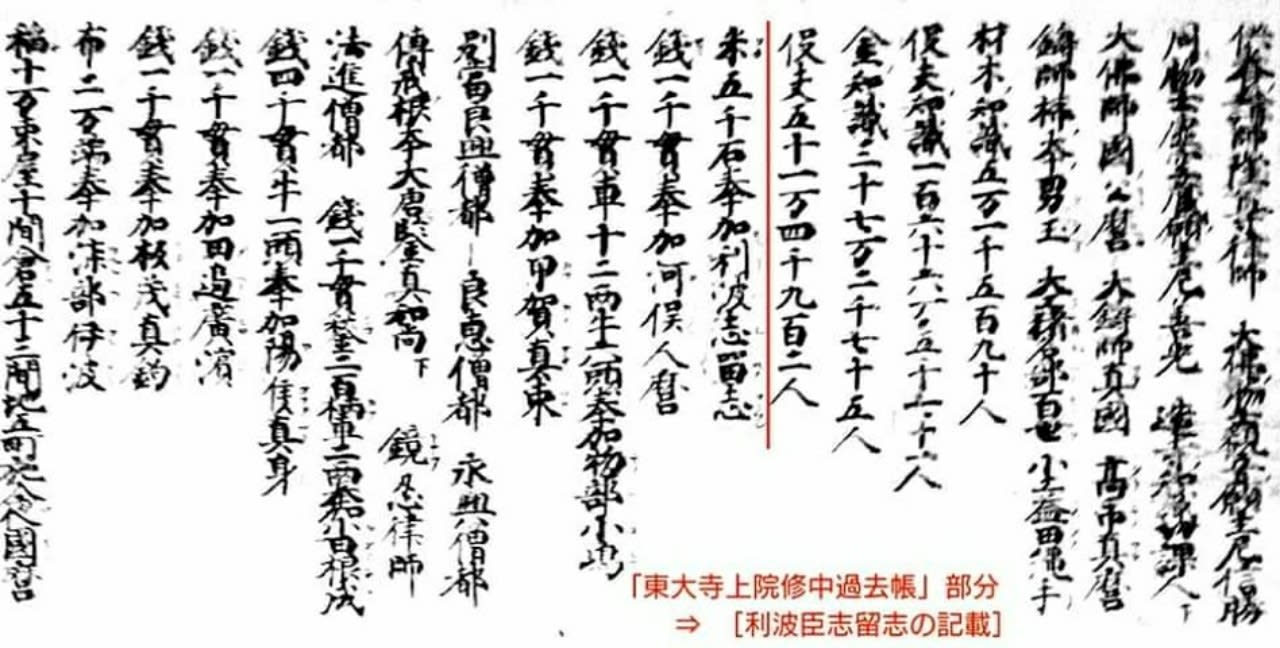 供養講師隆尊律師 願主尼信勝
願主尼善光 造寺知識功課人 下
大佛師國公麿 大鋳師真國 高市真麿
鋳師柿本男玉 百世 少工益田縄手
材木知識五万一千五百九十人
役夫知識一百六十六万五千七十一人
金知識三十七万二千七十五人
役夫五十一万四千九百二人
米五千石奉加利波志留志
錢一千貫奉加河俣人麿
錢一千貫車十二両牛六頭奉加物部小嶋
錢一千貫奉加甲賀真束
別當良興僧都 良恵僧都 永興僧都
傳戒根本大唐鑒真和尚 下 鏡忍律師
法進僧都 錢一千貫鍬二百柄車二両奉加少田根成
錢四千貫牛一頭奉加陽侯真身
錢一千貫奉加田邉廣濱
錢一千貫奉加板茂真釣
布二万端奉加漆部伊波
稲十万束屋十間倉五十三間地五町 國麿
「東大寺上院修中過去帳」部分
⇒ ［利波臣志留志の記載］